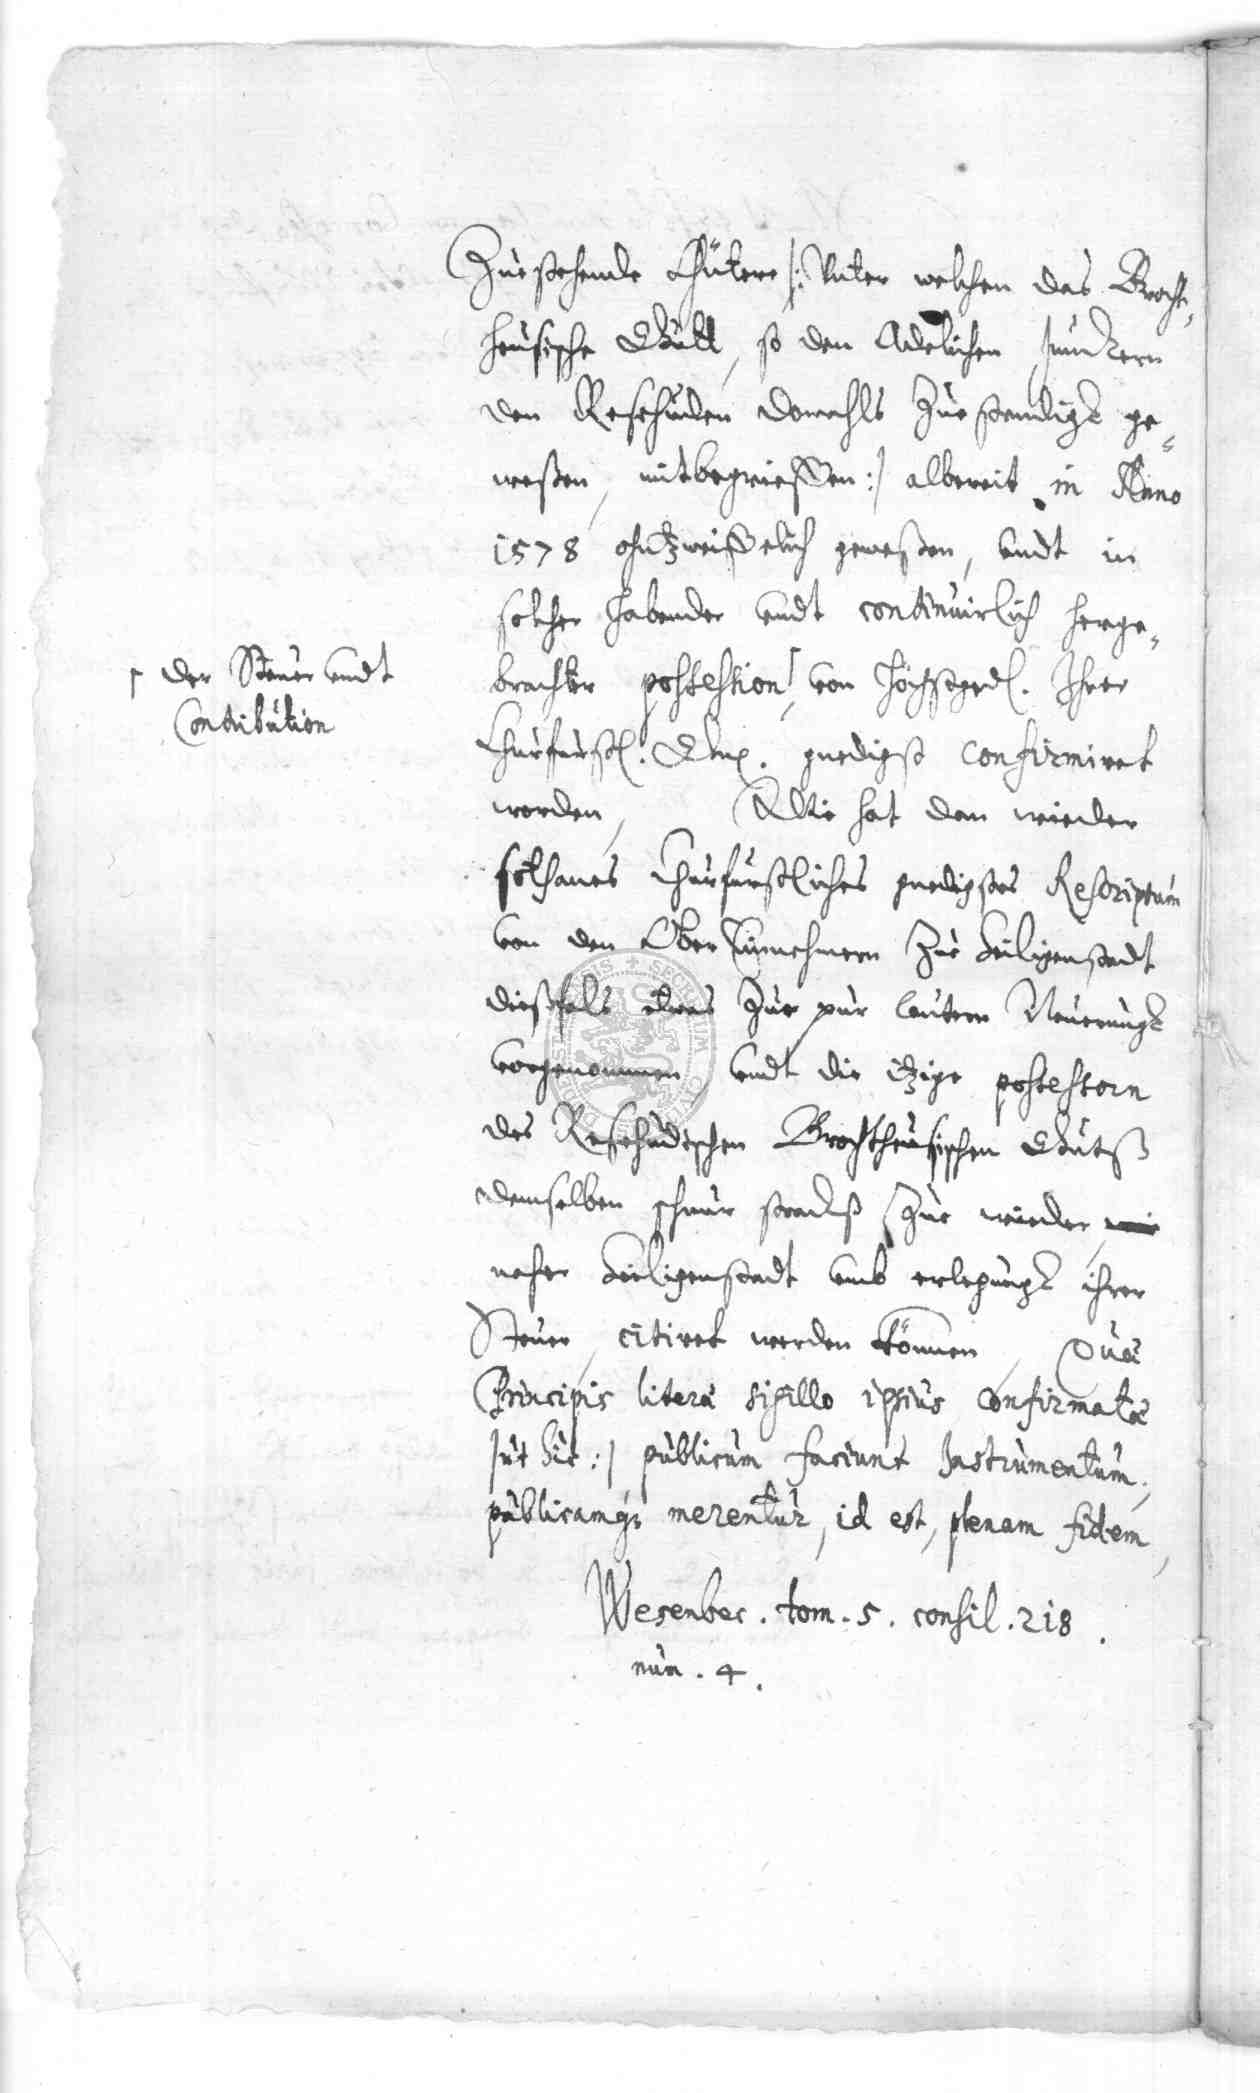 Zuestehende Gütere /: Unter welchen das Brocht-
heusische Guett, so den Adelichen Junckern
den Reschuden domahls Zuestendigk ge-
weßen, mitbegrieffen :/ albereit in Anno
1578 ohnzweiffelich geweßen, undt in
solcher habender undt continuirlich herge-
brachter possession, von höchstged. Ihrer
Churfürstl. Gnd. gnedigst confirmiret
worden, Wie hat dan wieder
sothanes Churfürstliches gnedigstes Rescriptum
von den Ober Einnehmern Zue Heiligenstadt
dießfals etwas Zue pur lautern Neuerungk
vorgenommen, undt die itzige possessorn
des Reschudischen Brochtheusischen Guetß
demselben schnur stracks Zue wieder,
nacher Heiligenstadt umb erlegungk ihrer
Steuer, citiret werden können, Quæ
Principis literæ sigillo ipsius confirmatæ
/ut hic :/ publicum faciunt Instrumentum,
publicamq; merentur, id est, plenam fidem,
Wesenbec. tom. 5. consil. 218.
num. 4.
der Steuer undt
Contribution